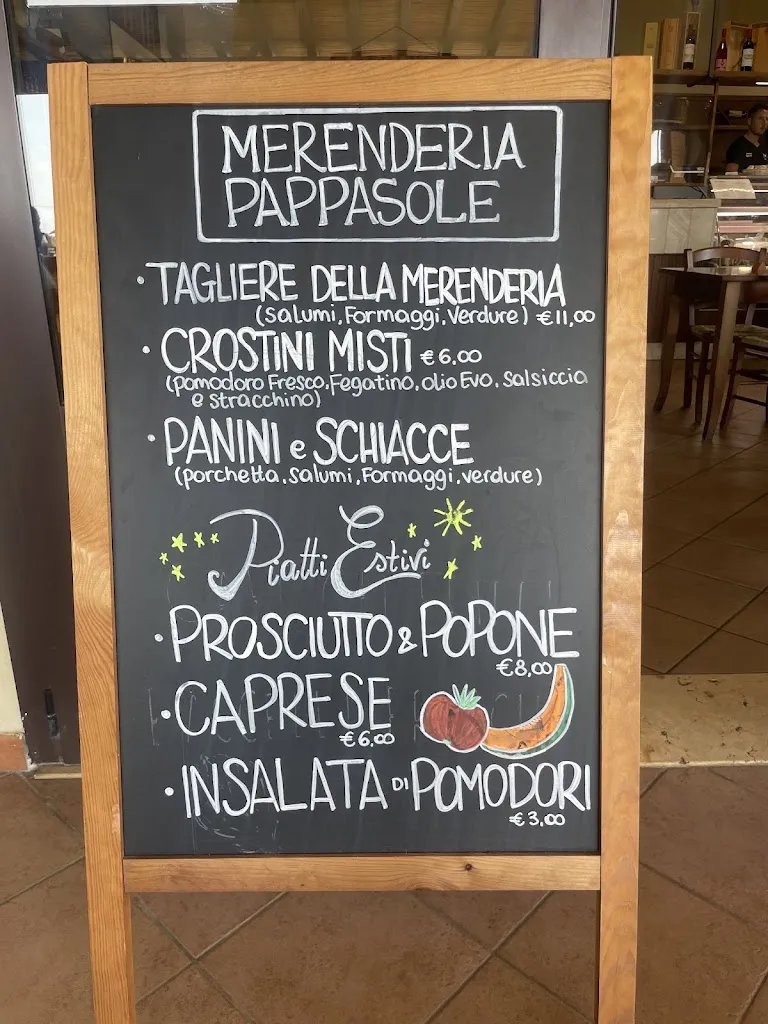 MERENDERIA
PAPPASOLE
· TAGLIERE DELLA MERENDERIA
(Salumi, Formaggi, Verdure) €11,00
· CROSTINI MISTI €6,00
(pomodoro Fresco, Fegatino, olio Evo, Salsiccia
e Stracchino)
· PANINI e SCHIACCE
(porchetta, Salumi, Formaggi, verdure)
Piatti Estivi
· PROSCIUTTO & POPONE
€8,00
· CAPRESE
€6,00
· INSALATA DI POMODORI
€3,00